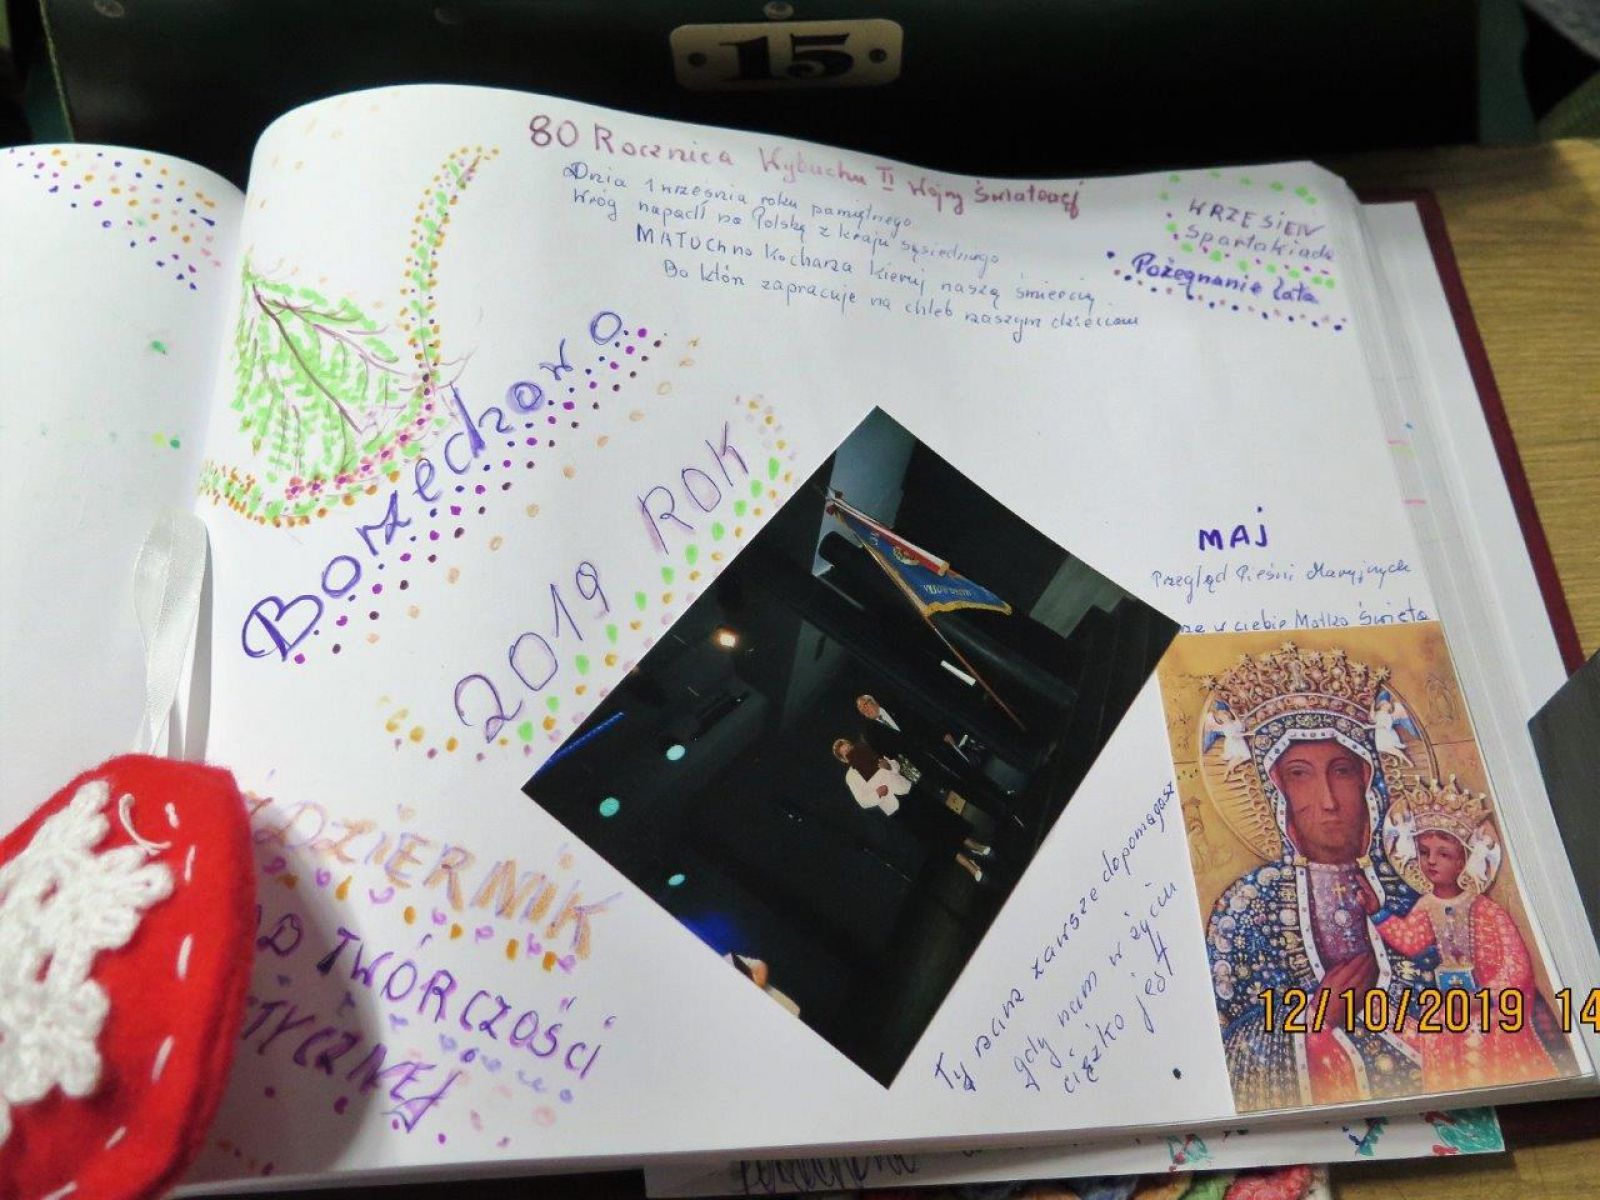 15
80 Rocznica Wybuchu II Wojny Światowej
Dnia 1 września roku pamiętnego
Wróg napadł na Polskę z kraju sąsiedniego
MATUCHno Kocharza Kieruj naszą śmiercią
Bo któn zapracuje na chleb naszym dzieciom
WRZESIEŃ
Spartakiada
Pożegnanie lata
Borzędzowo
2019 ROK
MAJ
Przegląd Pieśni Maryjnych
w ciebie Matko Święta
Ty nam zawsze dopomagasz
gdy nam w życiu
ciężko jest
DZIERNIK
AD TWÓRCZOŚCI
TYCZNEJ
12/10/2019 14